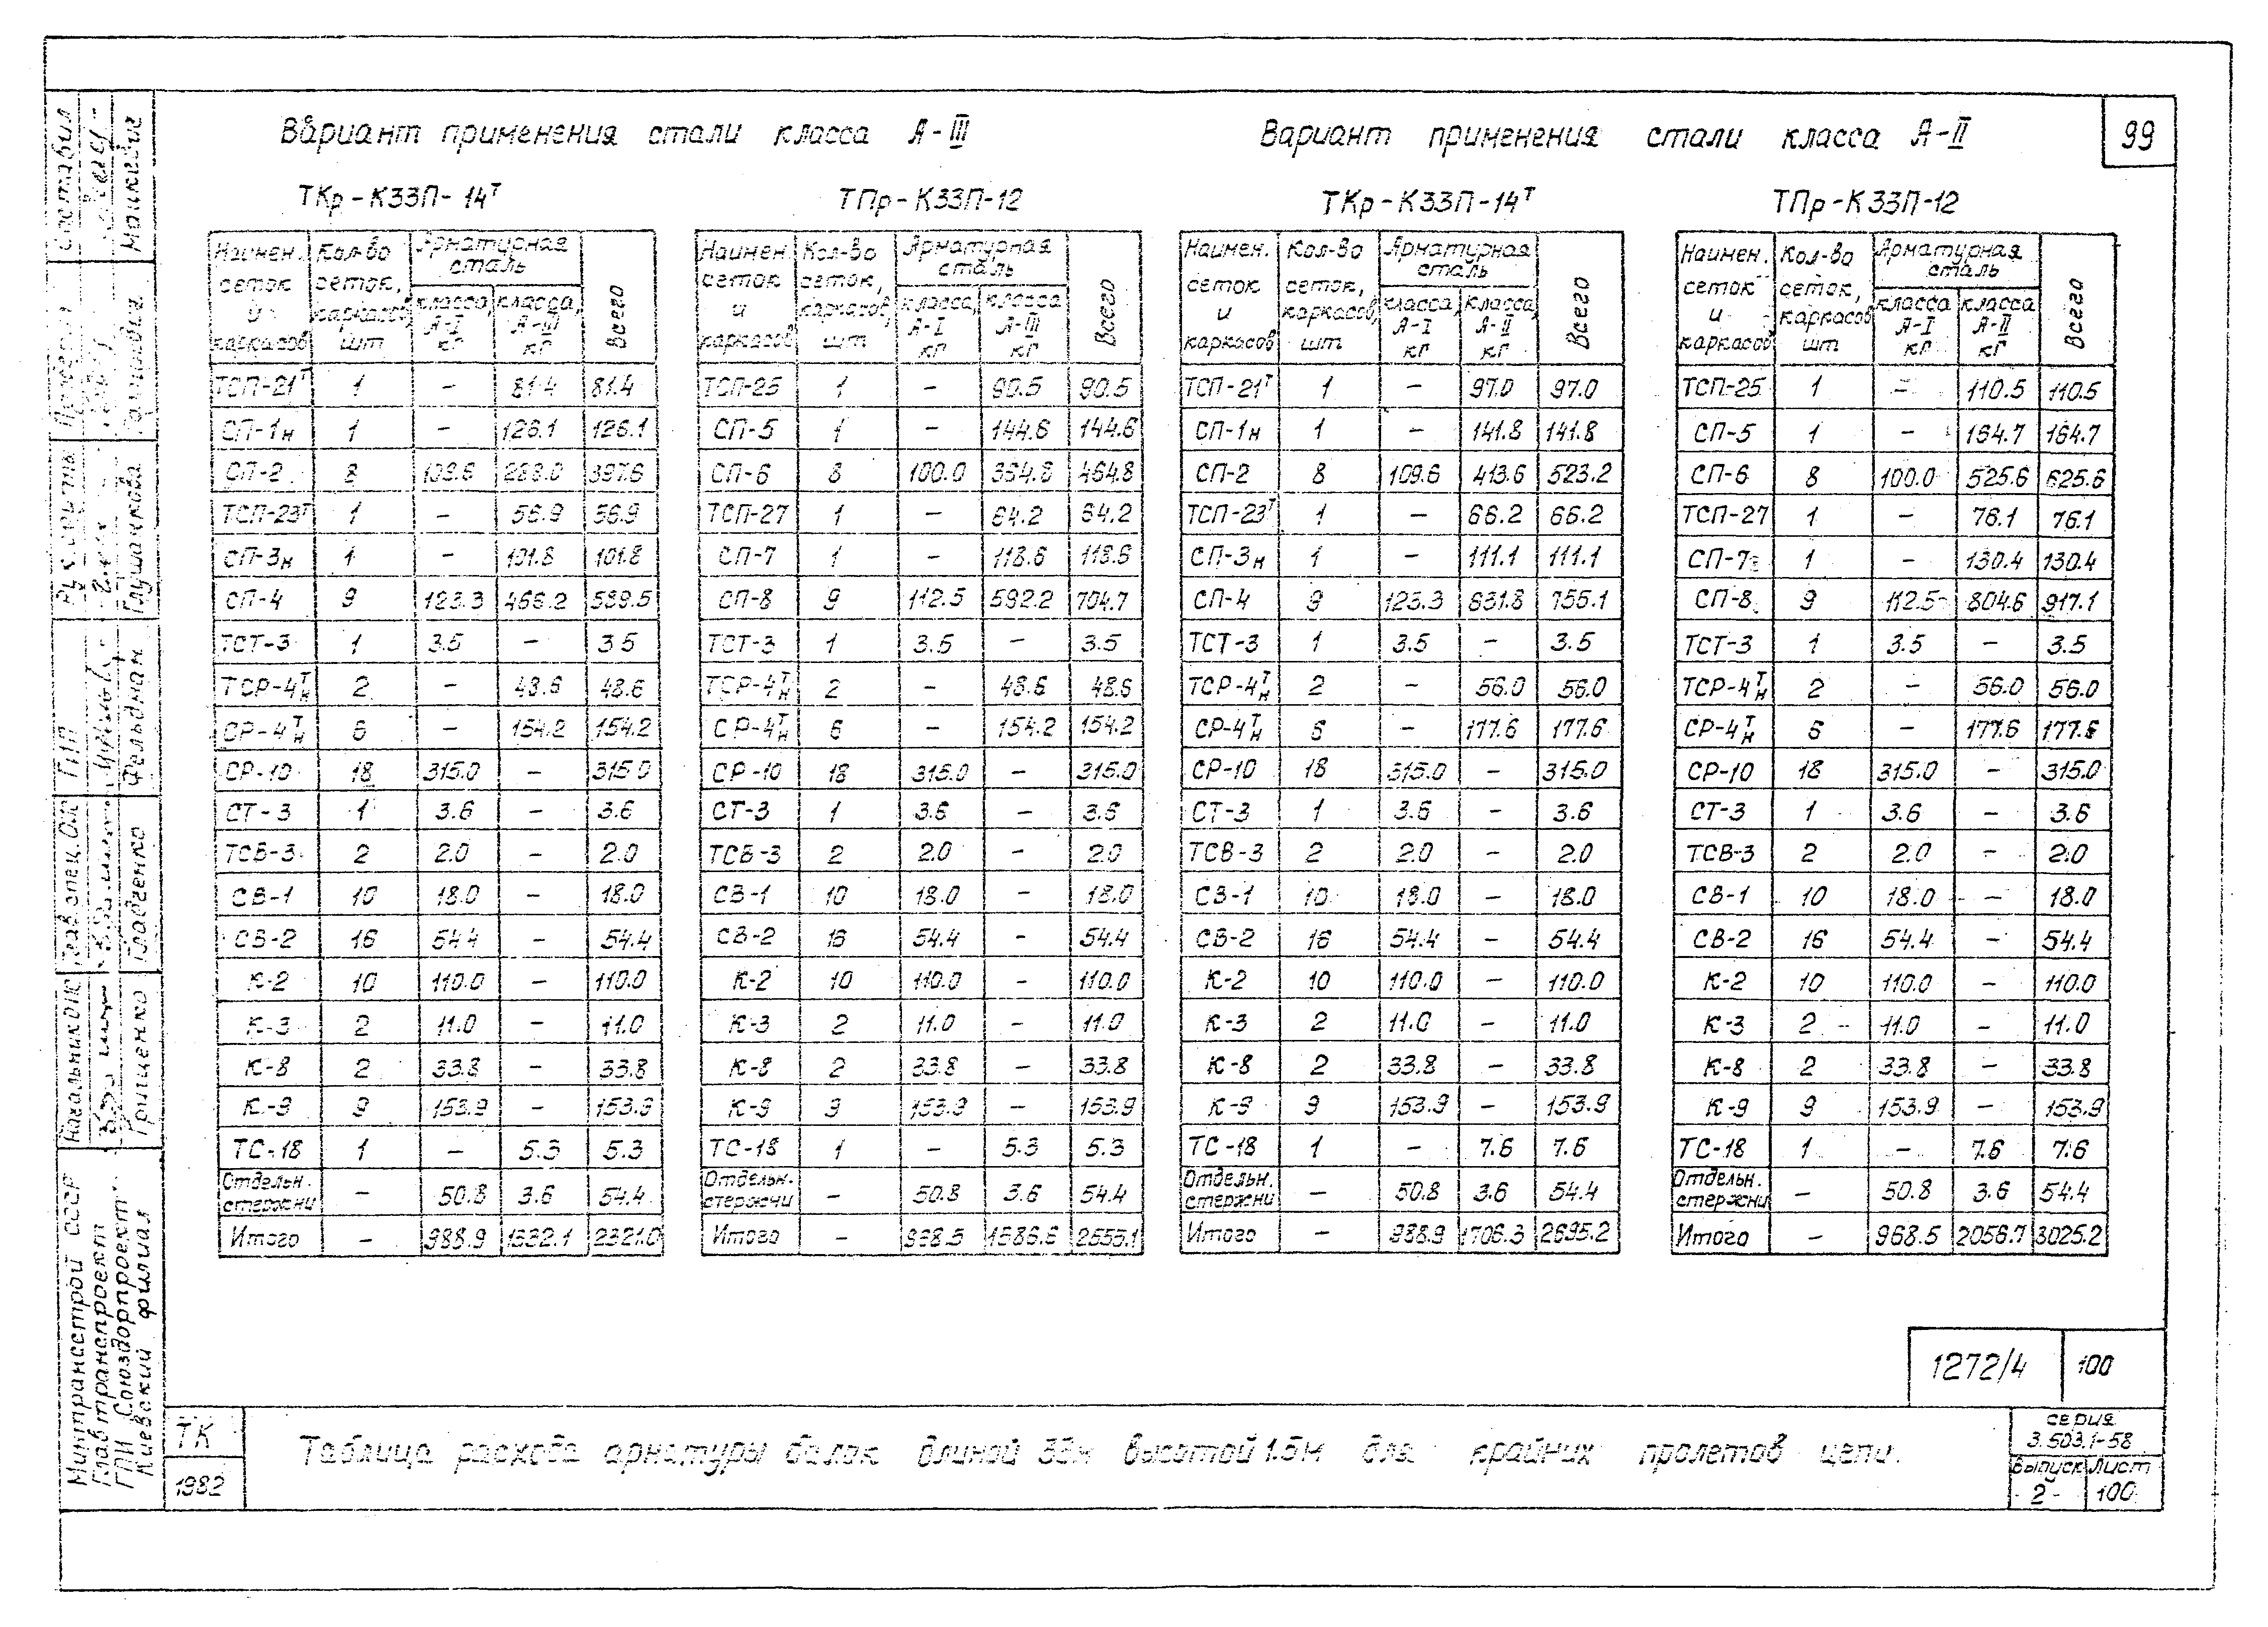 Вариант применения стали класса А-III
Вариант применения стали класса А-II
99
ТКр-К33П-14ᵀ
Наимен. сеток и каркасов | Кол-во сеток, каркасов, шт | Арматурная сталь класса А-I кг | класса А-III кг | Всего
ТСП-21ᵀ 1 – 81.4 81.4
СП-1н 1 – 126.1 126.1
СП-2 8 109.6 288.0 397.6
ТСП-23ᵀ 1 – 56.9 56.9
СП-3н 1 – 101.8 101.8
СП-4 9 123.3 466.2 589.5
ТСТ-3 1 3.5 – 3.5
ТСР-4ᵀн 2 – 48.6 48.6
СР-4ᵀн 6 – 154.2 154.2
СР-10 18 315.0 – 315.0
СТ-3 1 3.6 – 3.6
ТСВ-3 2 2.0 – 2.0
СВ-1 10 18.0 – 18.0
СВ-2 16 54.4 – 54.4
К-2 10 110.0 – 110.0
К-3 2 11.0 – 11.0
К-8 2 33.8 – 33.8
К-9 9 153.9 – 153.9
ТС-18 1 – 5.3 5.3
Отдельн. стержни – 50.8 3.6 54.4
Итого – 988.9 1332.1 2321.0
ТПр-К33П-12
Наимен. сеток и каркасов | Кол-во сеток, каркасов, шт | Арматурная сталь класса А-I кг | класса А-III кг | Всего
ТСП-25 1 – 90.5 90.5
СП-5 1 – 144.6 144.6
СП-6 8 100.0 364.8 464.8
ТСП-27 1 – 64.2 64.2
СП-7 1 – 118.6 118.6
СП-8 9 112.5 592.2 704.7
ТСТ-3 1 3.5 – 3.5
ТСР-4ᵀн 2 – 48.6 48.6
СР-4ᵀн 6 – 154.2 154.2
СР-10 18 315.0 – 315.0
СТ-3 1 3.6 – 3.6
ТСВ-3 2 2.0 – 2.0
СВ-1 10 18.0 – 18.0
СВ-2 16 54.4 – 54.4
К-2 10 110.0 – 110.0
К-3 2 11.0 – 11.0
К-8 2 33.8 – 33.8
К-9 9 153.9 – 153.9
ТС-18 1 – 5.3 5.3
Отдельн. стержни – 50.8 3.6 54.4
Итого – 968.5 1586.6 2555.1
ТКр-К33П-14ᵀ
Наимен. сеток и каркасов | Кол-во сеток, каркасов, шт | Арматурная сталь класса А-I кг | класса А-II кг | Всего
ТСП-21ᵀ 1 – 97.0 97.0
СП-1н 1 – 141.8 141.8
СП-2 8 109.6 413.6 523.2
ТСП-23ᵀ 1 – 66.2 66.2
СП-3н 1 – 111.1 111.1
СП-4 9 123.3 631.8 755.1
ТСТ-3 1 3.5 – 3.5
ТСР-4ᵀн 2 – 56.0 56.0
СР-4ᵀн 6 – 177.6 177.6
СР-10 18 315.0 – 315.0
СТ-3 1 3.6 – 3.6
ТСВ-3 2 2.0 – 2.0
СВ-1 10 18.0 – 18.0
СВ-2 16 54.4 – 54.4
К-2 10 110.0 – 110.0
К-3 2 11.0 – 11.0
К-8 2 33.8 – 33.8
К-9 9 153.9 – 153.9
ТС-18 1 – 7.6 7.6
Отдельн. стержни – 50.8 3.6 54.4
Итого – 988.9 1706.3 2695.2
ТПр-К33П-12
Наимен. сеток и каркасов | Кол-во сеток, каркасов шт | Арматурная сталь класса А-I кг | класса А-II кг | Всего
ТСП-25 1 – 110.5 110.5
СП-5 1 – 164.7 164.7
СП-6 8 100.0 525.6 625.6
ТСП-27 1 – 76.1 76.1
СП-7 1 – 130.4 130.4
СП-8 9 112.5 804.6 917.1
ТСТ-3 1 3.5 – 3.5
ТСР-4ᵀн 2 – 56.0 56.0
СР-4ᵀн 6 – 177.6 177.6
СР-10 18 315.0 – 315.0
СТ-3 1 3.6 – 3.6
ТСВ-3 2 2.0 – 2.0
СВ-1 10 18.0 – 18.0
СВ-2 16 54.4 – 54.4
К-2 10 110.0 – 110.0
К-3 2 11.0 – 11.0
К-8 2 33.8 – 33.8
К-9 9 153.9 – 153.9
ТС-18 1 – 7.6 7.6
Отдельн. стержни – 50.8 3.6 54.4
Итого – 968.5 2056.7 3025.2
1272/4 100
ТК
1982
Таблица расхода арматуры балок длиной 33м высотой 1.5м для крайних пролетов цепи.
серия
3.503.1-58
выпуск Лист
2 100
Минтрансстрой СССР
Главтранспроект
ГПИ Союздорпроект
Киевский филиал
Начальник ОИС Гриценко
Глав. спец. ОИС Гладченко
ГИП Фельдман
Рук. группы Глушакова
Составил